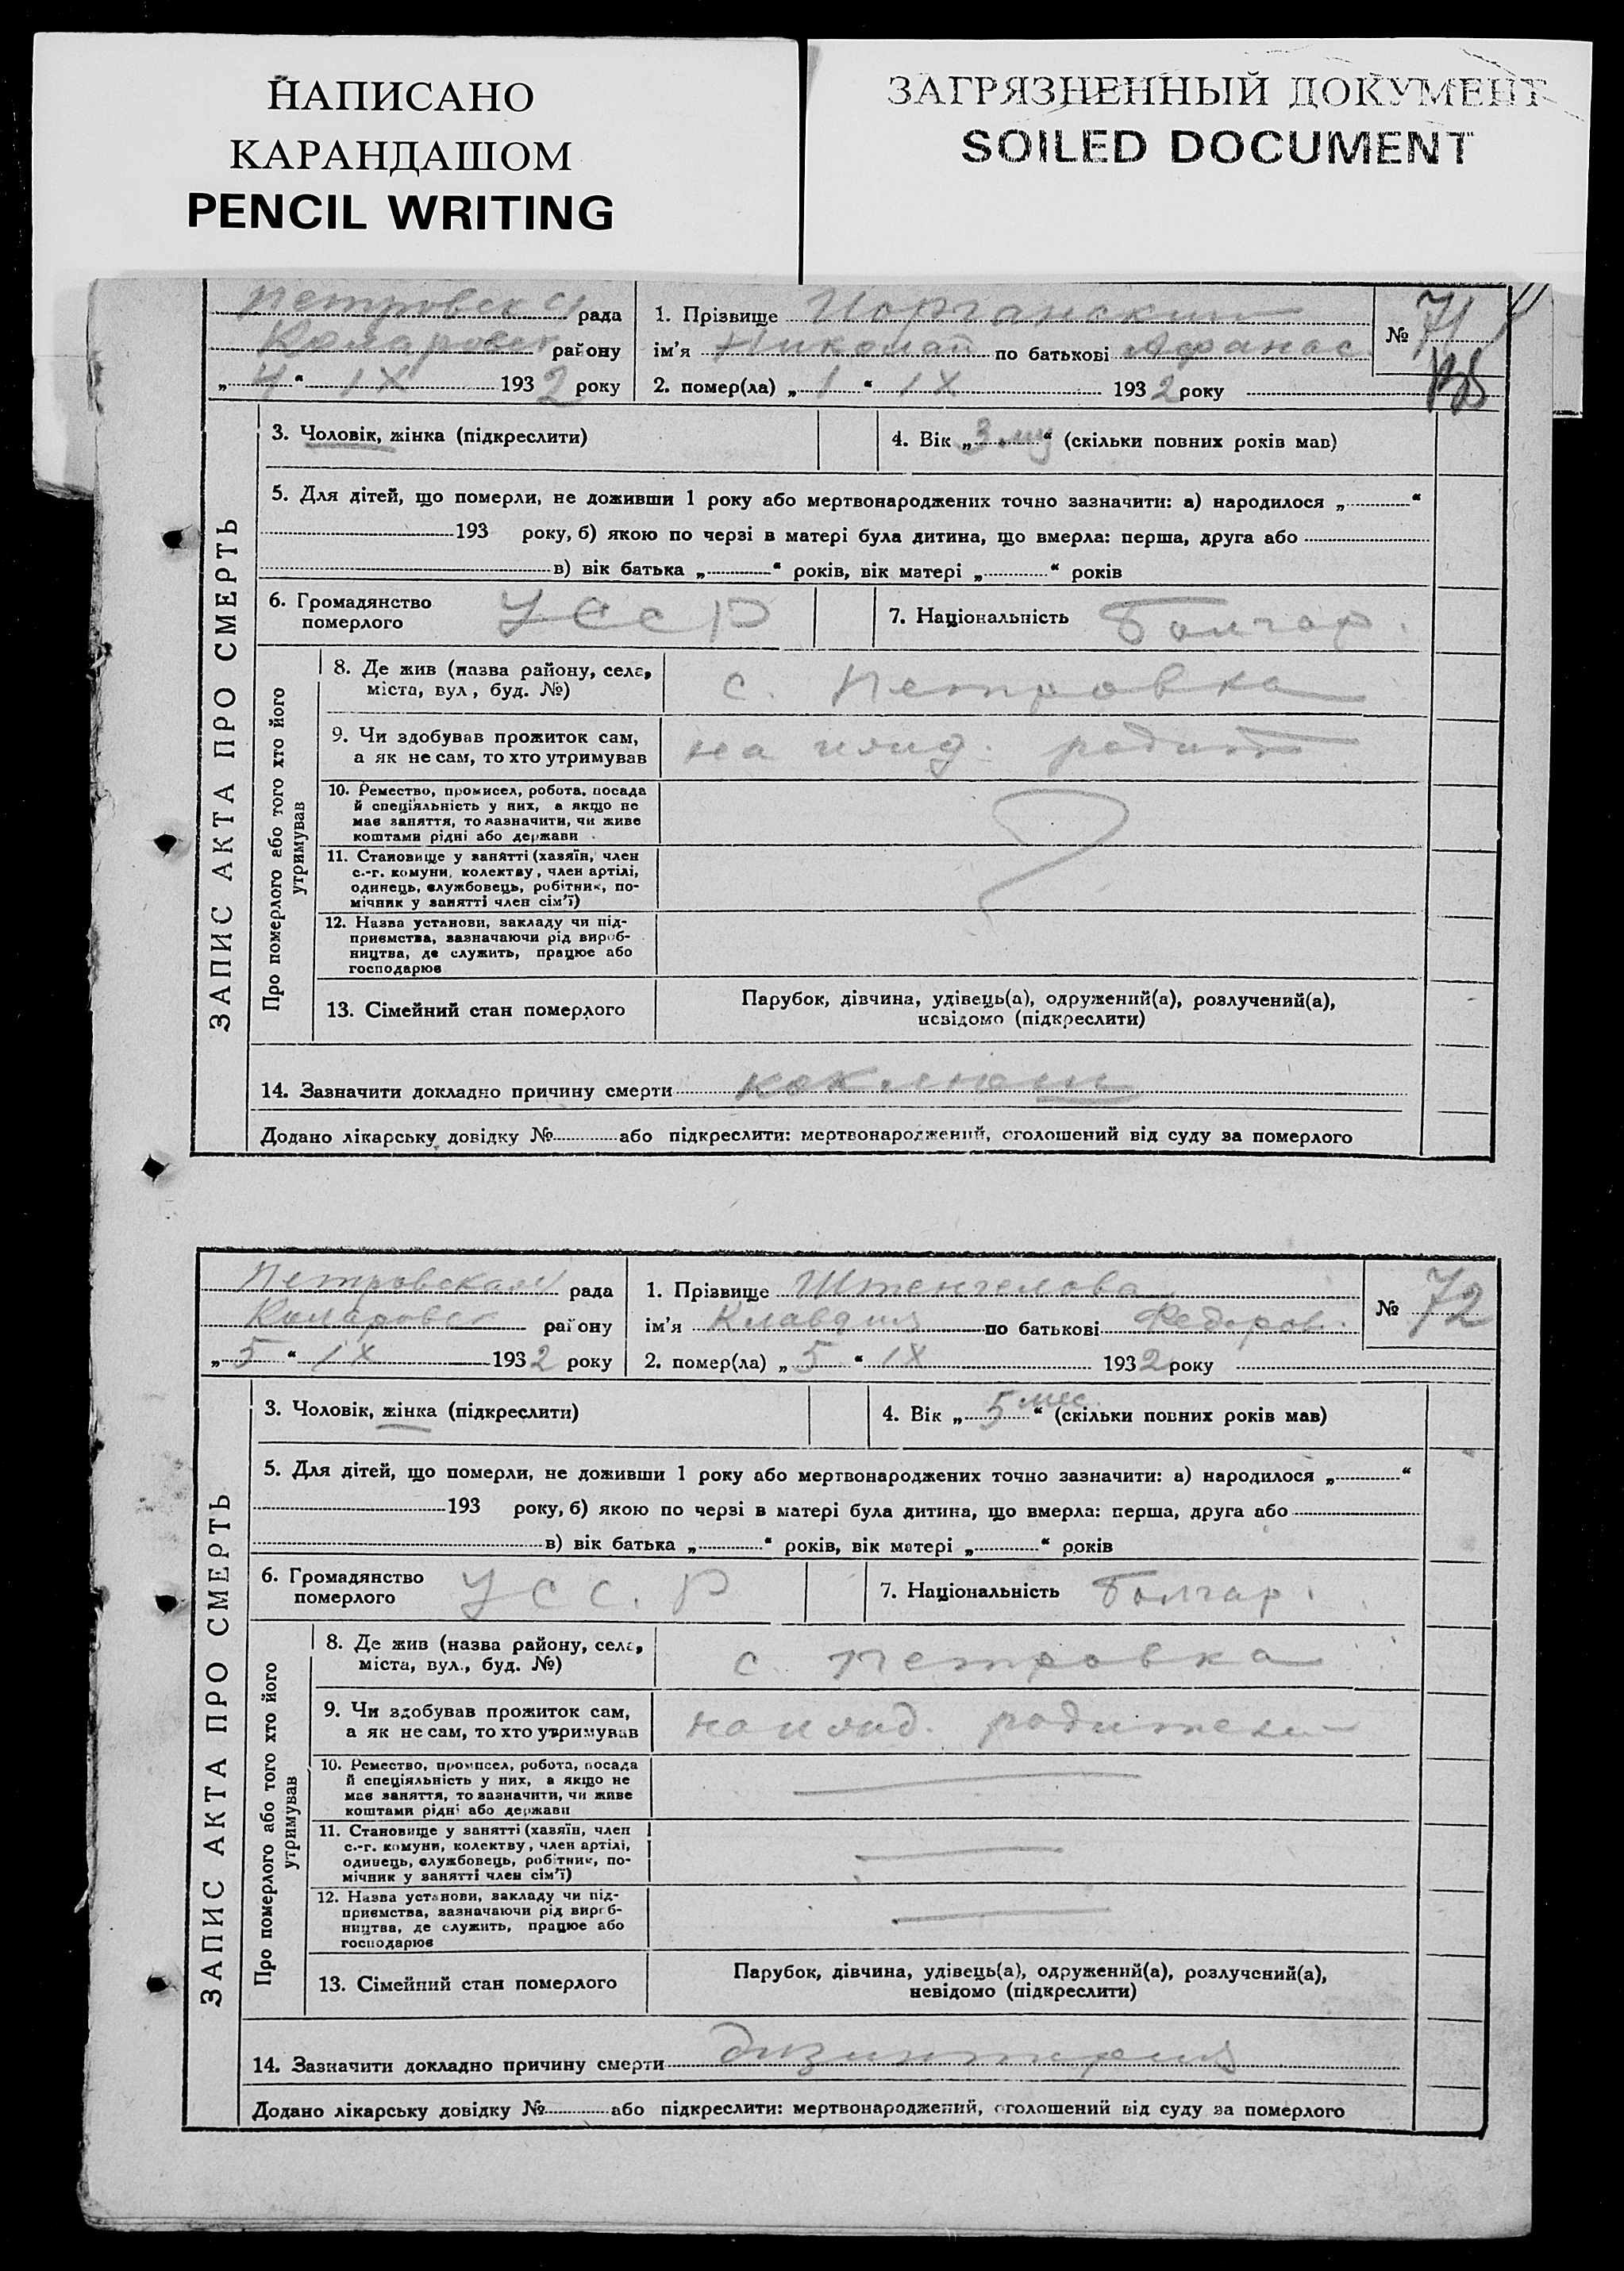 НАПИСАНО
КАРАНДАШОМ
PENCIL WRITING
ЗАГРЯЗНЕННЫЙ ДОКУМЕНТ
SOILED DOCUMENT
рада
Коларовск району
„ 4 “ IX 1932 року
1. Прізвище
ім’я Николай по батькові Афанас.
2. помер(ла) „ 1 “ IX 1932 року
№ 71
ЗАПИС АКТА ПРО СМЕРТЬ
3. Чоловік, жінка (підкреслити)
4. Вік „ 3 “ (скільки повних років мав)
5. Для дітей, що померли, не доживши 1 року або мертвонароджених точно зазначити: а) народилося „ “
193 року, б) якою по черзі в матері була дитина, що вмерла: перша, друга або
в) вік батька „ “ років, вік матері „ “ років
6. Громадянство
померлого УССР
7. Національність Болгар.
Про померлого або того хто його
утримував
8. Де жив (назва району, села,
міста, вул, буд. №) с. Петровка
9. Чи здобував прожиток сам,
а як не сам, то хто утримував на ижд. родит
10. Ремество, промисел, робота, посада
й спеціяльність у них, а якщо не
має заняття, то зазначити, чи живе
коштами рідні або держави
11. Становище у занятті (хазяїн, член
с.-г. комуни, колективу, член артілі,
одинець, службовець, робітник, по-
мічник у занятті член сім’ї)
12. Назва установи, закладу чи під-
приємства, зазначаючи рід вироб-
ництва, де служить, працює або
господарює
13. Сімейний стан померлого
Парубок, дівчина, удівець(а), одружений(а), розлучений(а),
невідомо (підкреслити)
14. Зазначити докладно причину смерти коклюш
Додано лікарську довідку № або підкреслити: мертвонароджений, оголошений від суду за померлого
Петровская рада
Коларовск району
„ 5 “ IX 1932 року
1. Прізвище Штенгелова
ім’я Клавдия по батькові Федоров.
2. помер(ла) „ 5 “ IX 1932 року
№ 72
ЗАПИС АКТА ПРО СМЕРТЬ
3. Чоловік, жінка (підкреслити)
4. Вік „ 5 мес. “ (скільки повних років мав)
5. Для дітей, що померли, не доживши 1 року або мертвонароджених точно зазначити: а) народилося „ “
193 року, б) якою по черзі в матері була дитина, що вмерла: перша, друга або
в) вік батька „ “ років, вік матері „ “ років
6. Громадянство
померлого УСС.Р
7. Національність Болгар.
Про померлого або того хто його
утримував
8. Де жив (назва району, села,
міста, вул., буд. №) с. Петровка
9. Чи здобував прожиток сам,
а як не сам, то хто утримував на ижд. родители
10. Ремество, промисел, робота, посада
й спеціяльність у них, а якщо не
має заняття, то зазначити, чи живе
коштами рідні або держави
11. Становище у занятті (хазяїн, член
с.-г. комуни, колективу, член артілі,
одинець, службовець, робітник, по-
мічник у занятті член сім’ї)
12. Назва установи, закладу чи під-
приємства, зазначаючи рід вироб-
ництва, де служить, працює або
господарює
13. Сімейний стан померлого
Парубок, дівчина, удівець(а), одружений(а), розлучений(а),
невідомо (підкреслити)
14. Зазначити докладно причину смерти дизинтерия
Додано лікарську довідку № або підкреслити: мертвонароджений, оголошений від суду за померлого